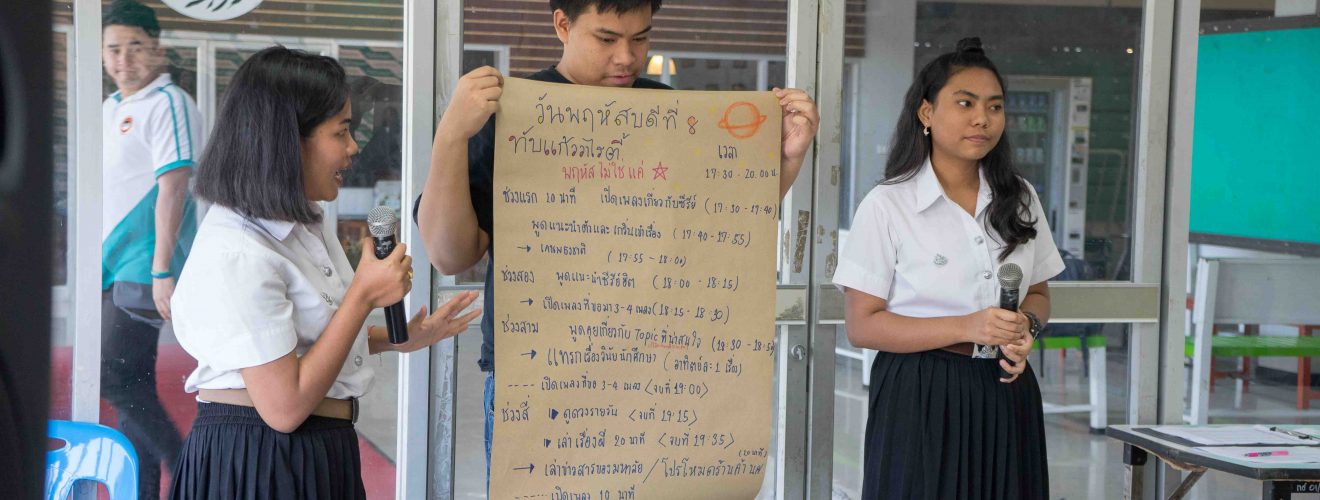 วันพฤหัสบดีที่ 8
ทับแก้ววาไรตี้ เวลา
พฤหัส ไม่ใช่ แค่ ☆ 17:30 - 20.00 น.
ช่วงแรก 10 นาที เปิดเพลงเกี่ยวกับซีรีย์ (17:30 - 17:40)
พูดแนะนำตัวและ เกริ่นนำเรื่อง (17:40 - 17:55)
→ เคารพธงชาติ (17:55 - 18:00)
ช่วงสอง พูดแนะนำซีรีย์ฮิต (18:00 - 18:15)
→ เปิดเพลงที่ขอมา 3-4 เพลง (18:15 - 18:30)
ช่วงสาม พูดคุยเกี่ยวกับ Topic ที่น่าสนใจ (18:30 - 18:50)
→ แทรกเรื่องวินัยนักศึกษา (อาทิตย์ละ 1 เรื่อง)
---- เปิดเพลงที่ขอ 3-4 เพลง <จบที่ 19:00>
ช่วงสี่ ดูดวงรายวัน <จบที่ 19:15>
เล่าเรื่องผี 20 นาที <จบที่ 19:35>
(20 นาที)
→ เล่าข่าวสารของมหาลัย / โปรโหมดร้านค้า
----- เปิดเพลง 10 นาที